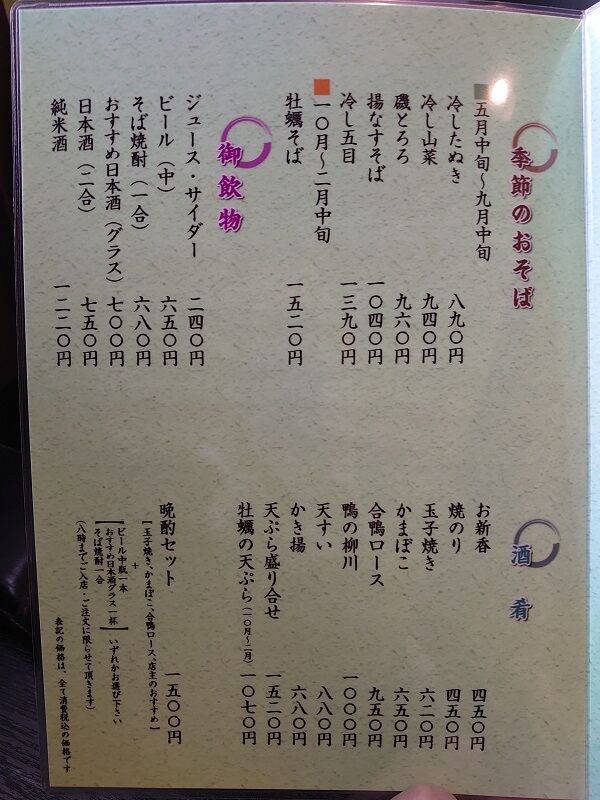 季節のおそば
■五月中旬～九月中旬
冷したぬき 八九〇円
冷し山菜 九四〇円
磯とろろ 九六〇円
揚なすそば 一〇四〇円
冷し五目 一三九〇円
■一〇月～二月中旬
牡蠣そば 一五二〇円
御飲物
ジュース・サイダー 二四〇円
ビール（中） 六五〇円
そば焼酎（一合） 六八〇円
おすすめ日本酒（グラス） 七〇〇円
日本酒（二合） 七五〇円
純米酒 一二二〇円
酒肴
お新香 四五〇円
焼のり 四五〇円
玉子焼き 六二〇円
かまぼこ 六五〇円
合鴨ロース 九五〇円
鴨の柳川 一〇〇〇円
天すい 八八〇円
かき揚 六八〇円
天ぷら盛り合せ 一五二〇円
牡蠣の天ぷら（一〇月～二月） 一〇七〇円
晩酌セット 一五〇〇円
【玉子焼き、かまぼこ、合鴨ロース、店主のおすすめ】
＋
【ビール中瓶一本
おすすめ日本酒グラス一杯
そば焼酎一合】いずれかお選び下さい
（八時までご入店・ご注文に限らせて頂きます）
表記の価格は、全て消費税込の価格です